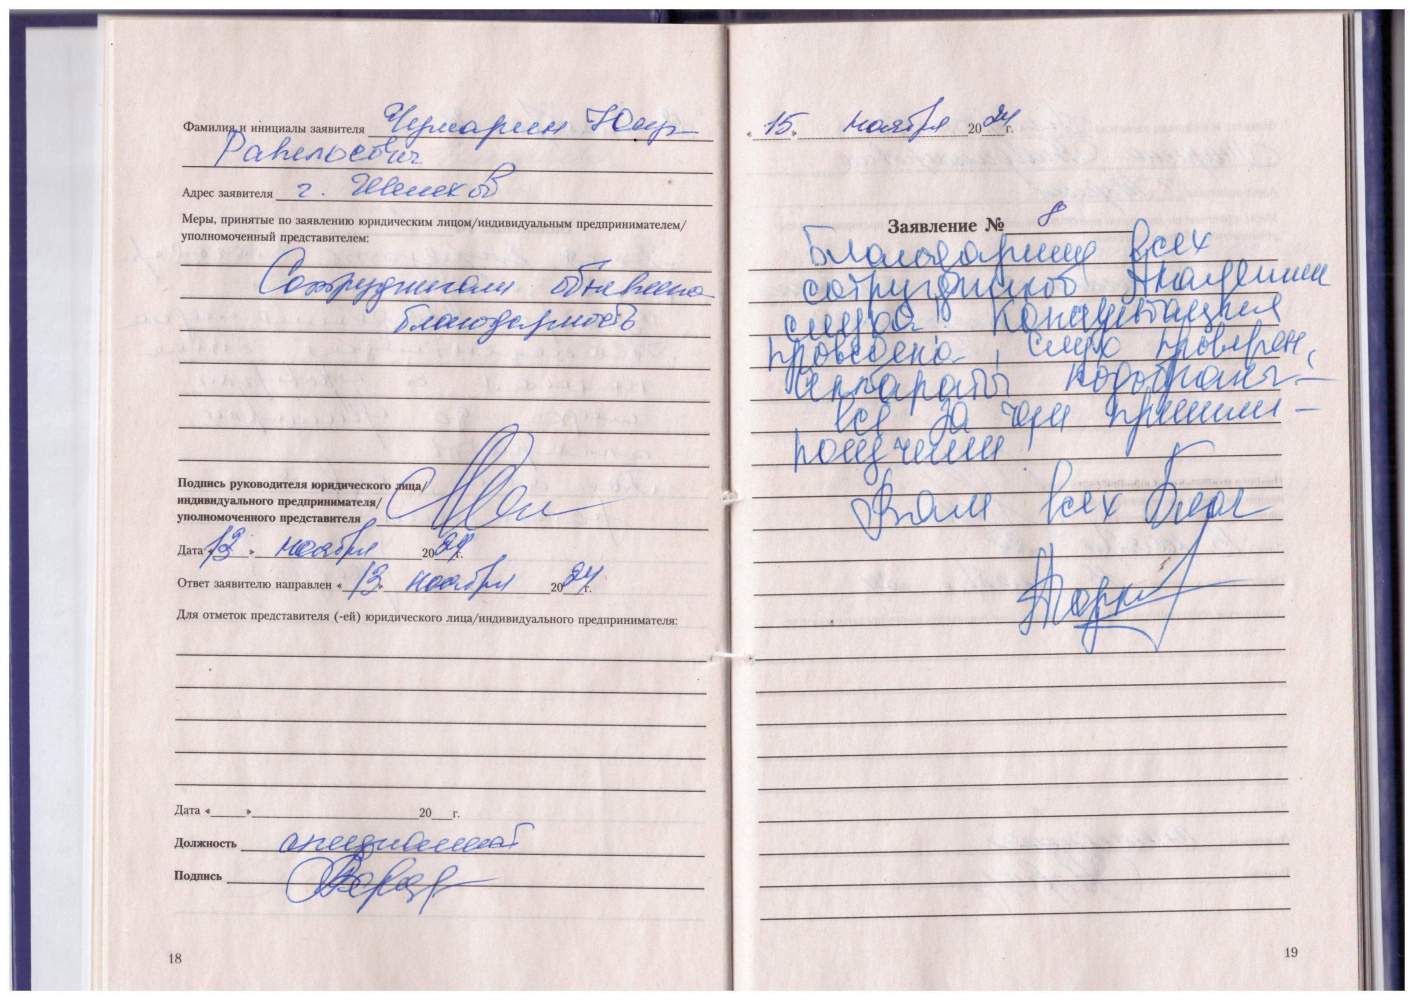 Фамилия и инициалы заявителя Чумарин Юнер
Равельевич
Адрес заявителя г. Шелехов
Меры, принятые по заявлению юридическим лицом/индивидуальным предпринимателем/
уполномоченный представителем:
Сотрудникам объявлена
благодарность
Подпись руководителя юридического лица/
индивидуального предпринимателя/
уполномоченного представителя
Дата «13» ноября 2024г.
Ответ заявителю направлен «13» ноября 2024г.
Для отметок представителя (-ей) юридического лица/индивидуального предпринимателя:
Дата «____»____ 20__г.
Должность специалист
Подпись
18
«15» ноября 2024г.
Заявление № 8
Благодарим всех
сотрудников "Академии
слуха". Консультация
проведена, слух проверен,
аппараты подобраны –
всё за чем пришли –
получили
Вам всех благ
19